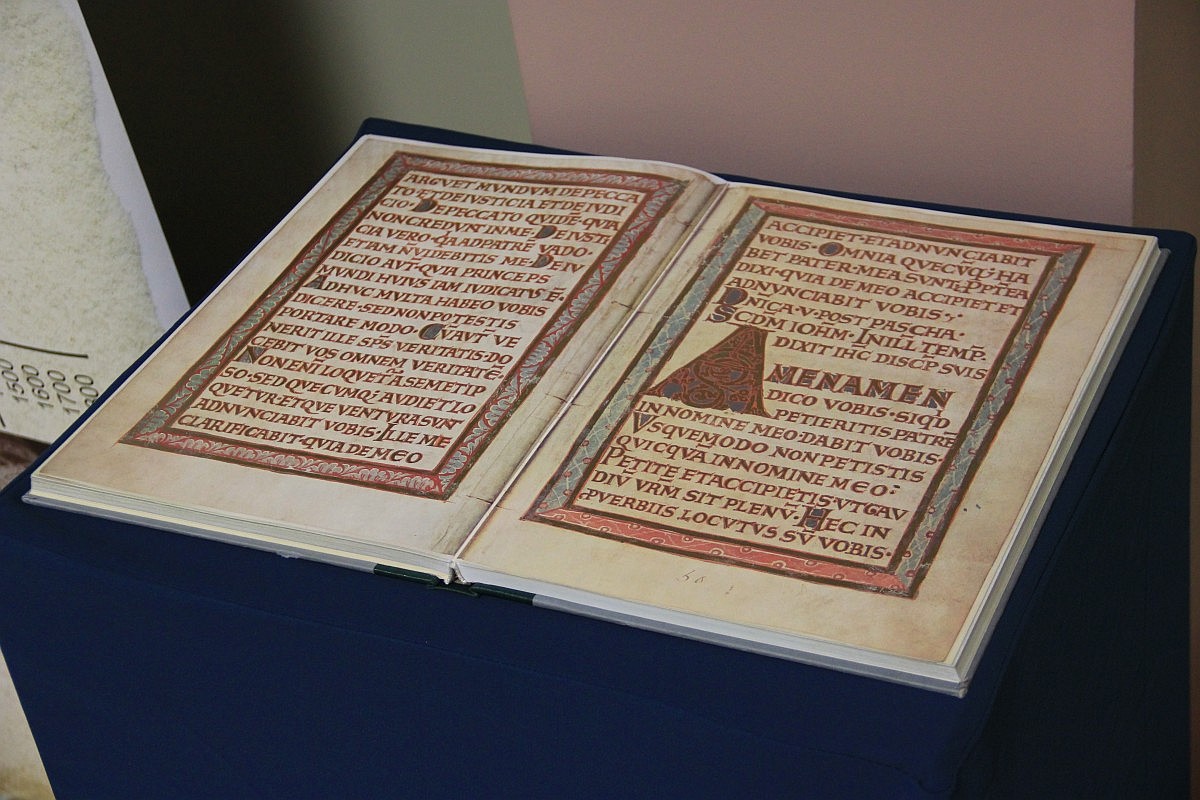 ARGVET MVNDVM DE PECCA
TO·ET DE IVSTICIA ET DE IVDI
CIO· DE PECCATO QVIDĒ·QVIA
NON CREDVNT IN ME· DE IVSTI
CIA VERO·Q̄A AD PATRĒ VADO·
ET IAM N̄ VIDEBITIS ME· DE IV
DICIO AVT̄·QVIA PRINCEPS
MVNDI HVIVS IAM IVDICATVS Ē·
ADHVC MVLTA HABEO VOBIS
DICERE·SED NON POTESTIS
PORTARE MODO· CV̄ AVT̄ VE
NERIT ILLE SPS̄ VERITATIS·DO
CEBIT VOS OMNEM VERITATĒ·
NON ENĪ LOQVET̄ A SEMETIP
SO·SED QVECVMQ; AVDIET LO
QVETVR·ET QVE VENTVRA SVNT
ADNVNCIABIT VOBIS· ILLE ME
CLARIFICABIT·QVIA DE MEO
ACCIPIET·ET ADNVNCIABIT
VOBIS· OMNIA QVECVQ; HA
BET PATER·MEA SVNT·PP̄TEA
DIXI·QVIA DE MEO ACCIPIET ET
ADNVNCIABIT VOBIS·
DNICA·V·POST PASCHA·
SCDM IOHM· IN ILL̄ TEMP̄·
DIXIT IHC DISCP̄ SVIS
AMEN AMEN
DICO VOBIS·SI QD
PETIERITIS PATRĒ
IN NOMINE MEO·DABIT VOBIS·
VSQVE MODO NON PETISTIS
QVICQVA IN NOMINE MEO:
PETITE ET ACCIPIETIS·VT GAV
DIV̄ VRM̄ SIT PLENV̄· HEC IN
PVERBIIS LOCVTVS SV̄ VOBIS·
1500
1600
1700